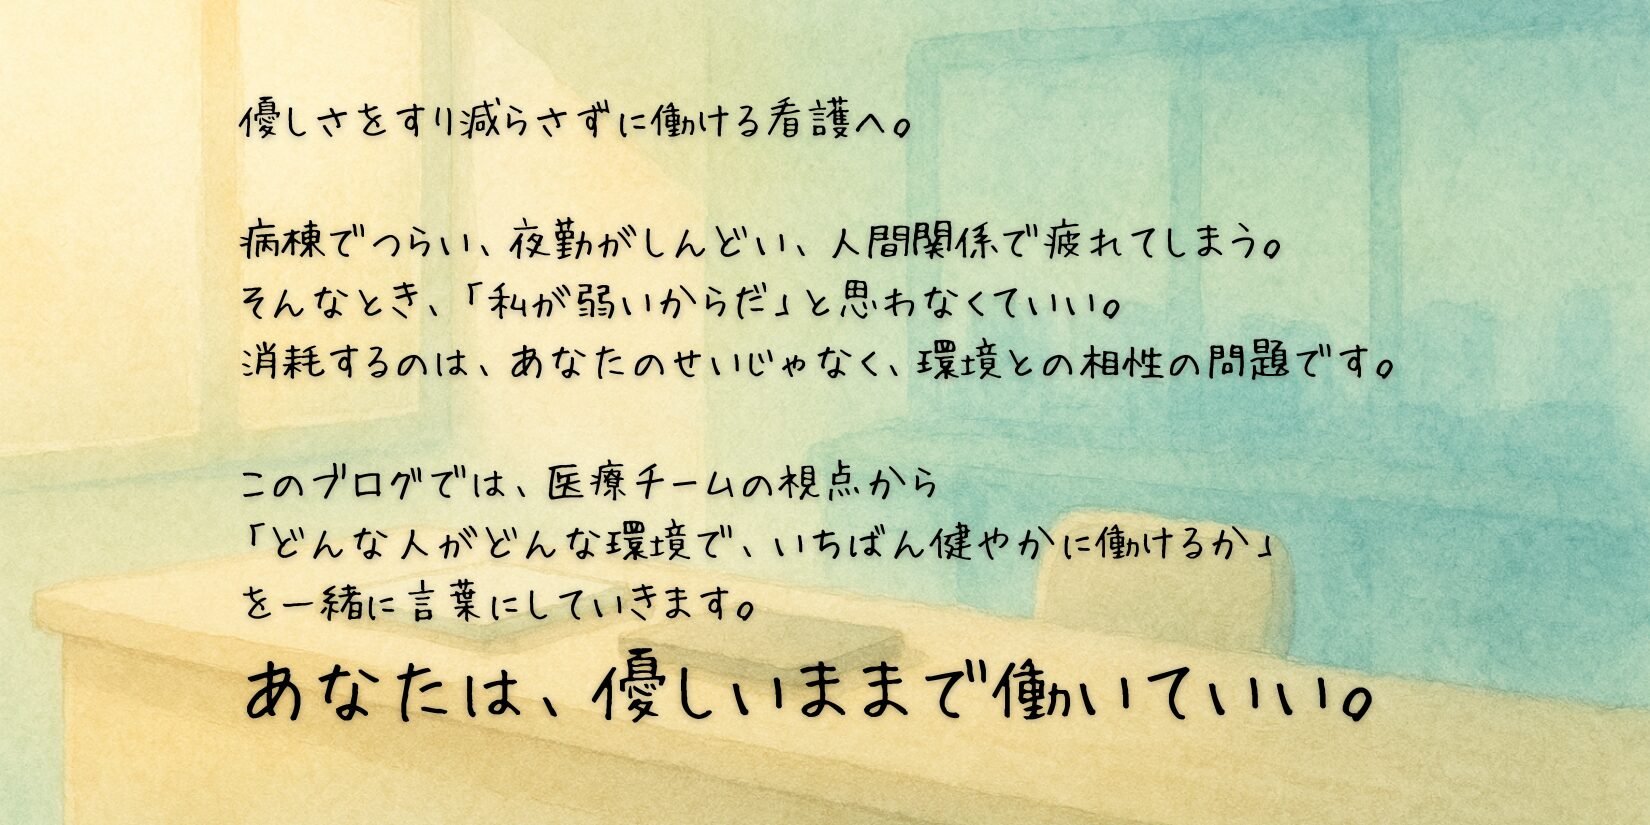 優しさをすり減らさずに働ける看護へ。
病棟でつらい、夜勤がしんどい、人間関係で疲れてしまう。
そんなとき、「私が弱いからだ」と思わなくていい。
消耗するのは、あなたのせいじゃなく、環境との相性の問題です。
このブログでは、医療チームの視点から
「どんな人がどんな環境で、いちばん健やかに働けるか」
を一緒に言葉にしていきます。
あなたは、優しいままで働いていい。